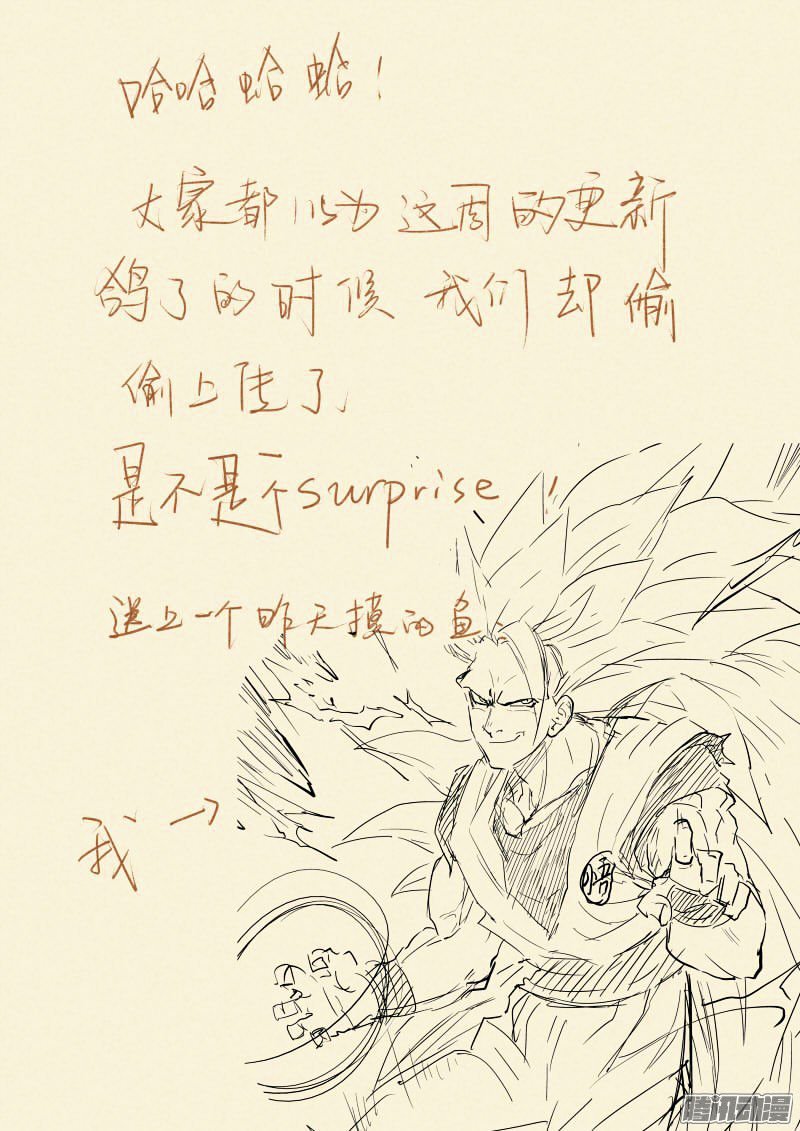 哈哈蛤蛤！
大家都以为这周的更新
鸽了的时候我们却偷
偷上传了
是不是个surprise！
送上一个昨天摸的鱼、
我→
悟
腾讯动漫